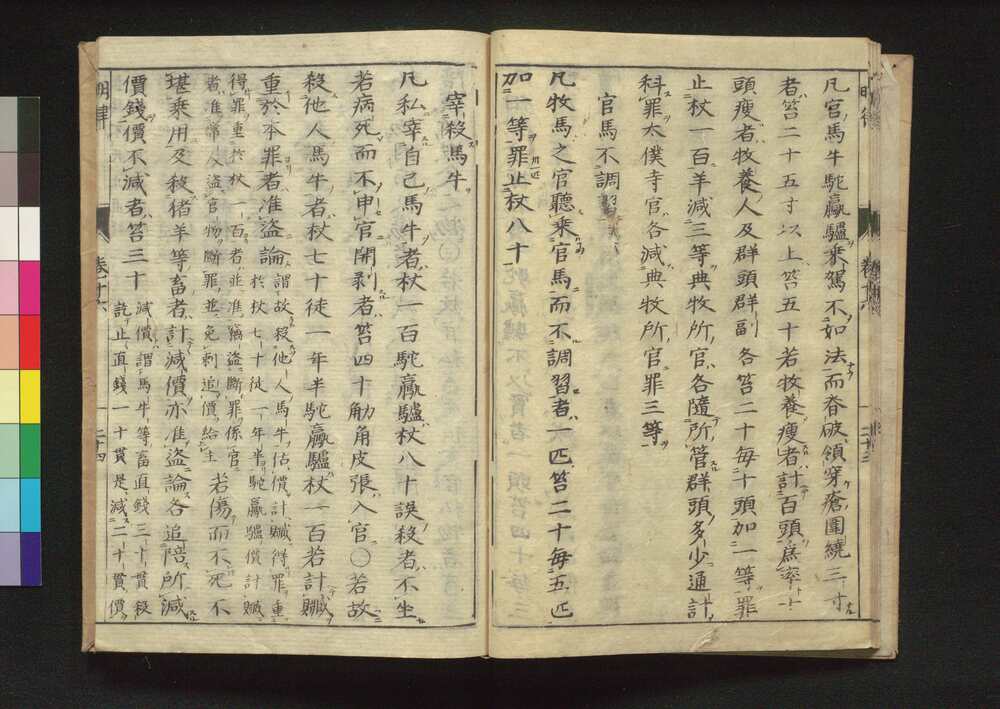 凡官馬牛駝驘驢乘駕不如法而脊破領穿瘡圍繞三寸
者笞二十五寸以上笞五十若牧養瘦者計百頭爲率十
頭瘦者牧養人及群頭群副各笞二十每十頭加一等罪
止杖一百羊減三等典牧所官各隨所管群頭多少通計
科罪太僕寺官各減典牧所官罪三等
官馬不調習
凡牧馬之官聽乘官馬而不調習者一匹笞二十每五匹
加一等罪止杖八十
宰殺馬牛
凡私宰自己馬牛者杖一百駝驘驢杖八十誤殺者不坐
若病死而不申官開剥者笞四十觔角皮張入官〇若故
殺他人馬牛者杖七十徒一年半駝驘驢杖一百若計贓
重於本罪者准盜論謂故殺他人馬牛估價計贓得罪重
於杖七十徒一年半駝驘驢價計贓
得罪重於杖一百者並准竊盜斷罪係官
者准常人盜官物斷罪並免刺追價給主若傷而不死不
堪乘用及殺猪羊等畜者計減價亦准盜論各追陪所減
價錢價不減者笞三十減價謂馬牛等畜直錢三十貫殺
訖止直錢一十貫是減二十貫價
明律
卷十六
二十四